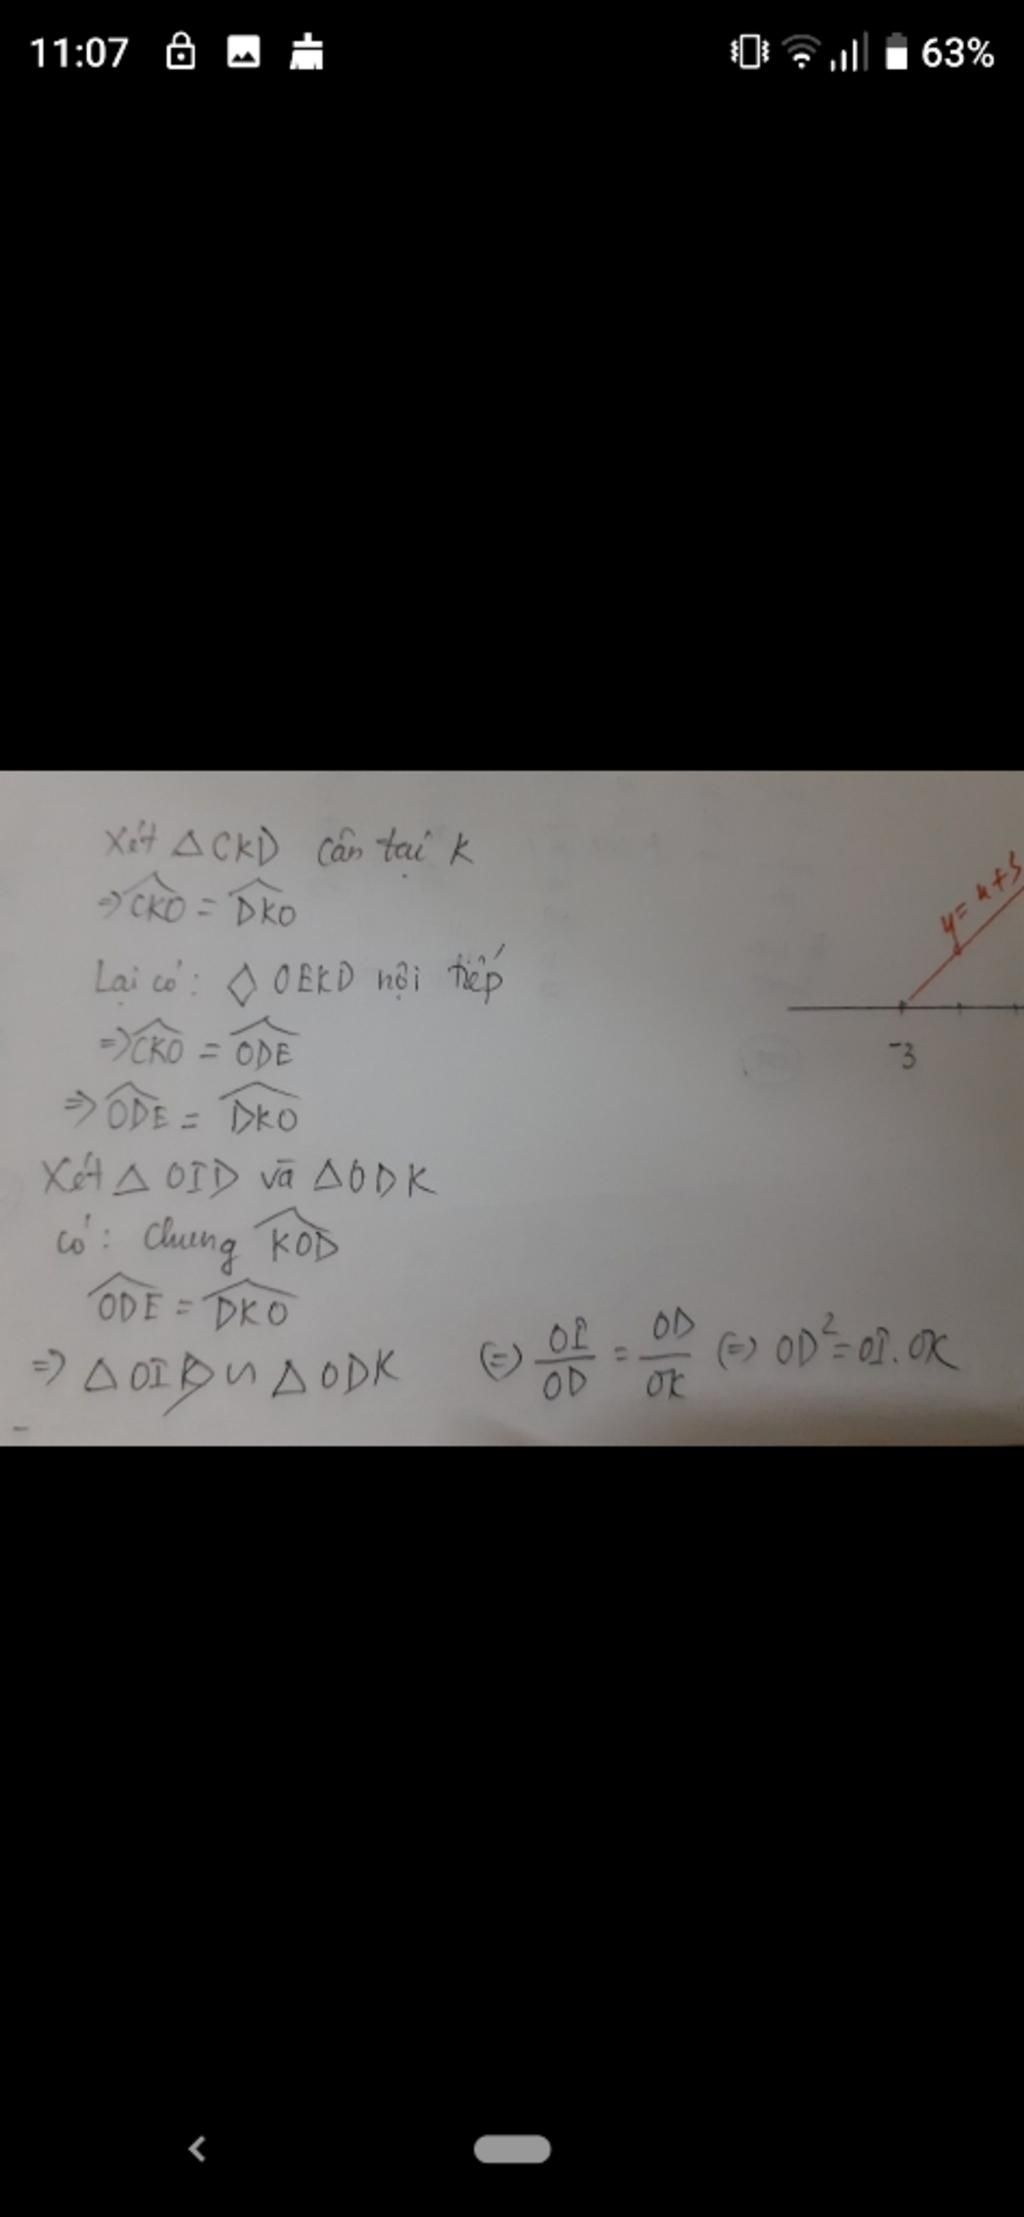 11:07
63%
Xét △CKD cân tại K
⇒ \widehat{CKO} = \widehat{DKO}
Lại có: ◇ OEKD nội tiếp
⇒ \widehat{CKO} = \widehat{ODE}
⇒ \widehat{ODE} = \widehat{DKO}
Xét △ OID và △ODK
có: Chung \widehat{KOD}
\widehat{ODE} = \widehat{DKO}
⇒ △OID ∽ △ODK (=) OI/OD = OD/OK (=) OD² = OI.OK
y = x+3
-3